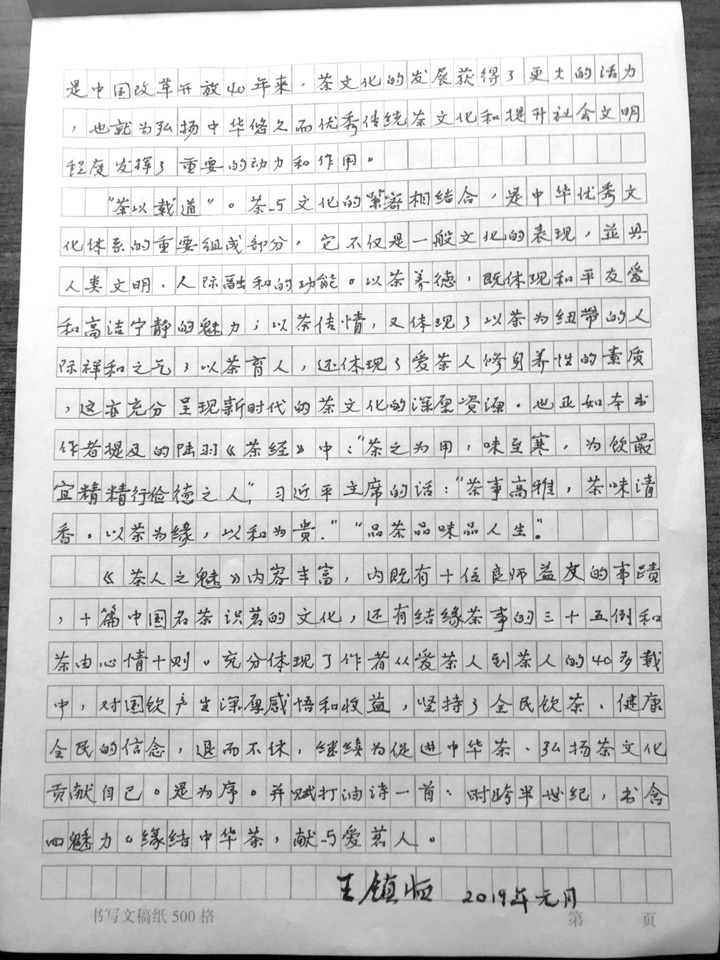 是中国改革开放40年来，茶文化的发展获得了更大的活力
，也就为弘扬中华悠久而优秀传统茶文化和提升社会文明
程度发挥了重要的动力和作用。
"茶以载道"。茶与文化的紧密相结合，是中华优秀文
化体系的重要组成部分，它不仅是一般文化的表现，并具
人类文明、人际融和的功能。以茶养德，既体现和平友爱
和高洁宁静的魅力；以茶传情，又体现了以茶为纽带的人
际祥和之气；以茶育人，还体现了爱茶人修身养性的素质
，这亦充分呈现新时代的茶文化的深厚资源。也正如本书
作者提及的陆羽《茶经》中："茶之为用，味至寒，为饮最
宜精精行俭德之人"，习近平主席的话："茶事高雅，茶味清
香。以茶为缘，以和为贵。""品茶品味品人生"。
《茶人之魅》内容丰富，内既有十位良师益友的事蹟
，十篇中国名茶识茗的文化，还有结缘茶事的三十五例和
茶由心情十则。充分体现了作者从爱茶人到茶人的40多载
中，对国饮产生深厚感悟和收益，坚持了全民饮茶、健康
全民的信念，退而不休，继续为促进中华茶、弘扬茶文化
贡献自己。是为序。并赋打油诗一首：时跨半世纪，书含
四魅力。缘结中华茶，献与爱茗人。
王镇恒 2019年元月
书写文稿纸500格 第 页